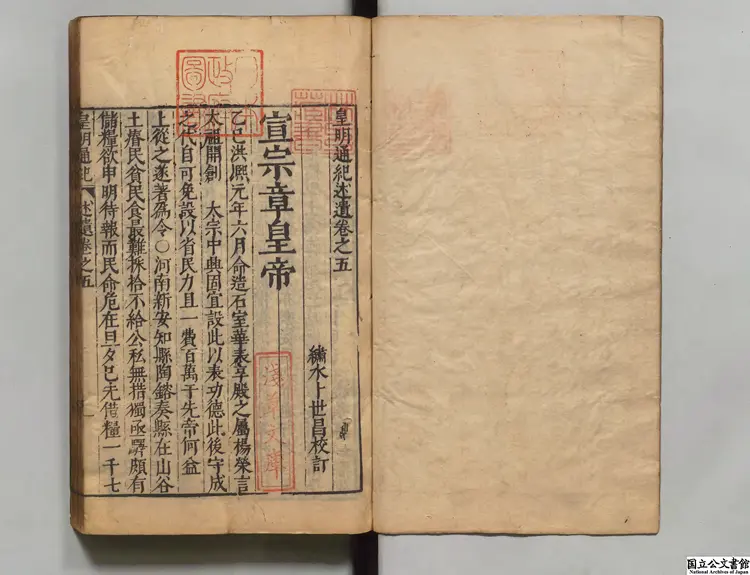 皇明通紀述遺卷之五
繡水卜世昌校訂
宣宗章皇帝
乙巳洪熙元年六月命造石室華表享殿之屬楊榮言
太祖開創　太宗中興固宜設此以表功德此後守成
之代自可免設以省民力且一費百萬于先帝何益
上從之遂著爲令○河南新安知縣陶鎔奏縣在山谷
土瘠民貧民食最難採拾不給公私無措獨亟驛頗有
儲糧欲申明待報而民命危在旦夕已先借糧一千七
皇明通紀　述遺卷之五
淺草文庫
国立公文書館
National Archives of Japan